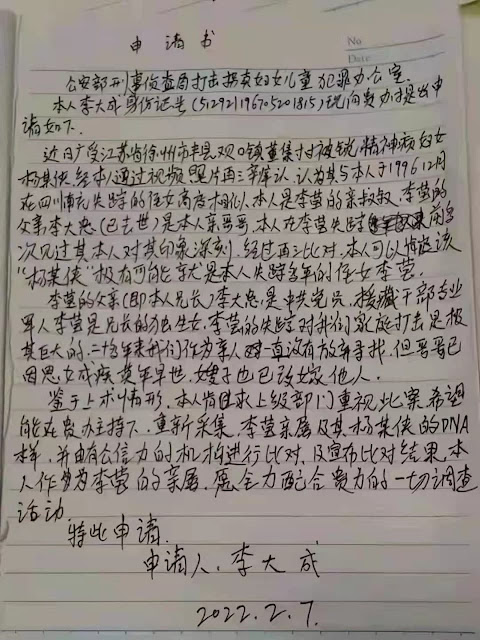 申请书
No
Date
公安部刑事侦查局打击拐卖妇女儿童犯罪办公室.
本人李大成身份证号(512921196705201815)现向贵办提出申
请如下.
近日广受江苏省徐州市丰县欢口镇董集村被锁精神病妇女
杨某侠经本人通过视频照片再三辨认.认为其与本人于1996.12月
在四川南充失踪的侄女高度相似.本人是李莹的亲叔叔.李莹的
父亲李大忠(已去世)是本人亲哥哥.本人在李莹失踪
次见过其本人对其印象深刻.经过再三比对.本人可以确定该
"杨某侠"极有可能就是本人失踪多年的侄女李莹.
李莹的父亲(即本人兄长)李大忠.是中共党员.援藏干部专业
军人李莹是兄长的独生女.李莹的失踪对我们家族打击是极
其巨大的.二十多年来我们作为亲人一直没有放弃寻找.但哥哥已
因思女成疾英年早世.嫂子也已改嫁他人.
鉴于上术情形.本人特此请求上级部门重视此案.希望
能在贵办主持下.重新采集.李莹亲属及其杨某侠的DNA
样.并由有公信力的机构进行比对.及宣布比对结果.本
人作为李莹的亲属.愿全力配合贵方的一切调查
活动.
特此申请.
申请人.李大成
2022.2.7.